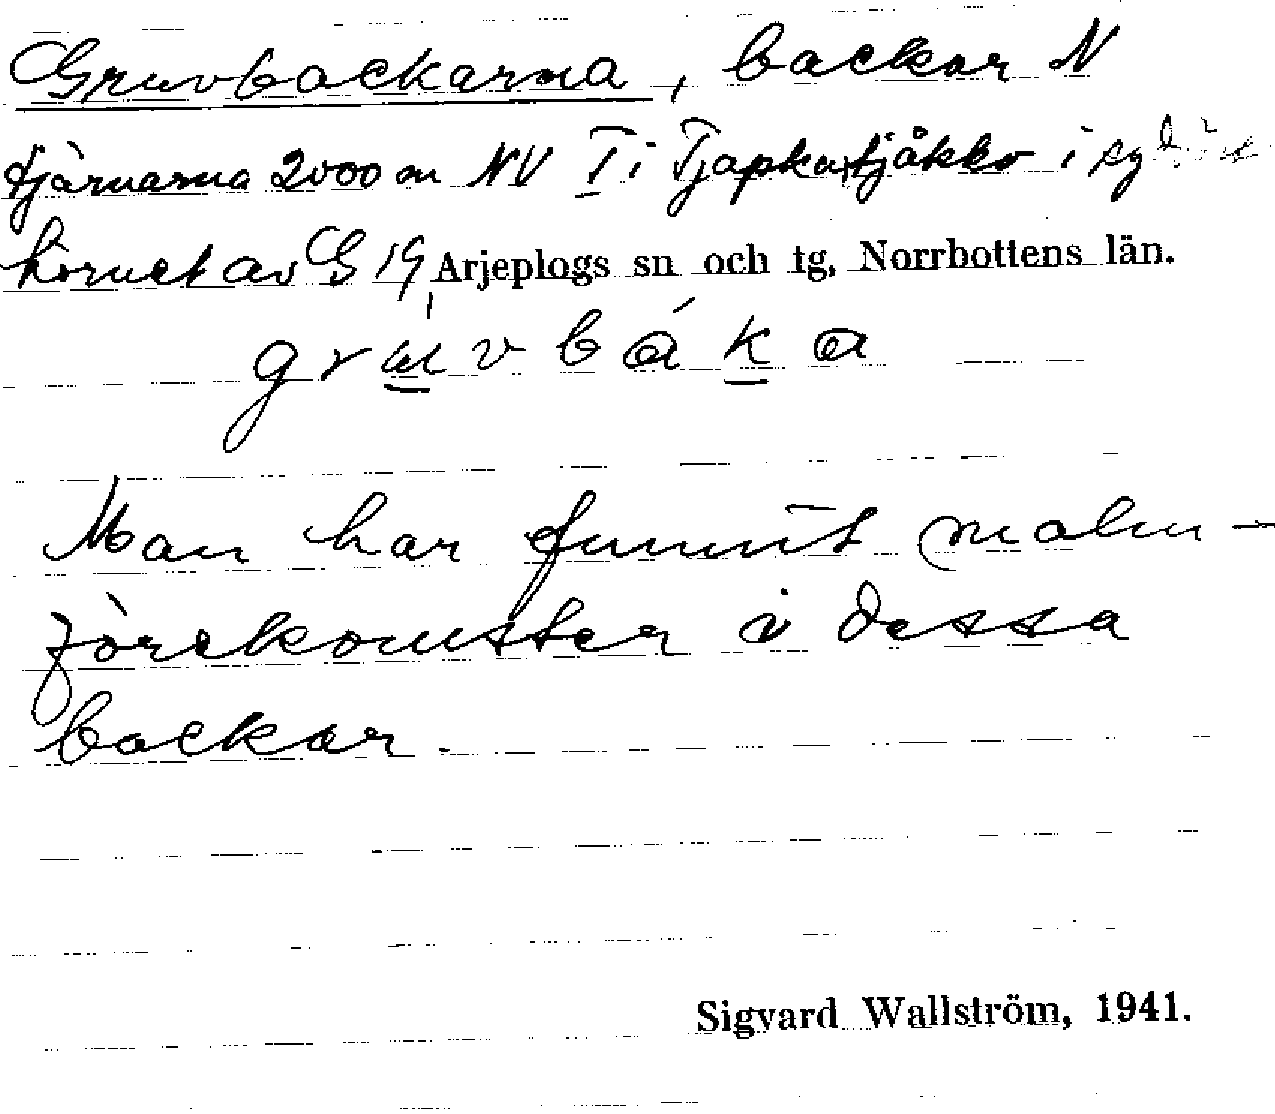 Gruvbackarna, backar N
tjärnarna 2000 m NV T i Tjapkatjåkko i sydöst
hörnet av G 19 Arjeplogs sn och tg, Norrbottens län.
gruvbáka
Man har funnit malm-
förekomster i dessa
backar.
Sigvard Wallström, 1941.